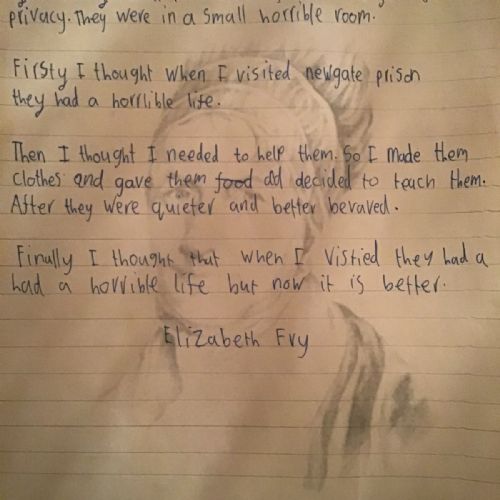 privacy. They were in a small horrible room.
Firsty I thought when I visited newgate prison
they had a horrlible life.
Then I thought I needed to help them. So I made them
clothes and gave them food dd decided to teach them.
After they were quieter and better bevaved.
Finally I thought that when I Vistied they had a
had a horrible life but now it is better.
Elizabeth Fry